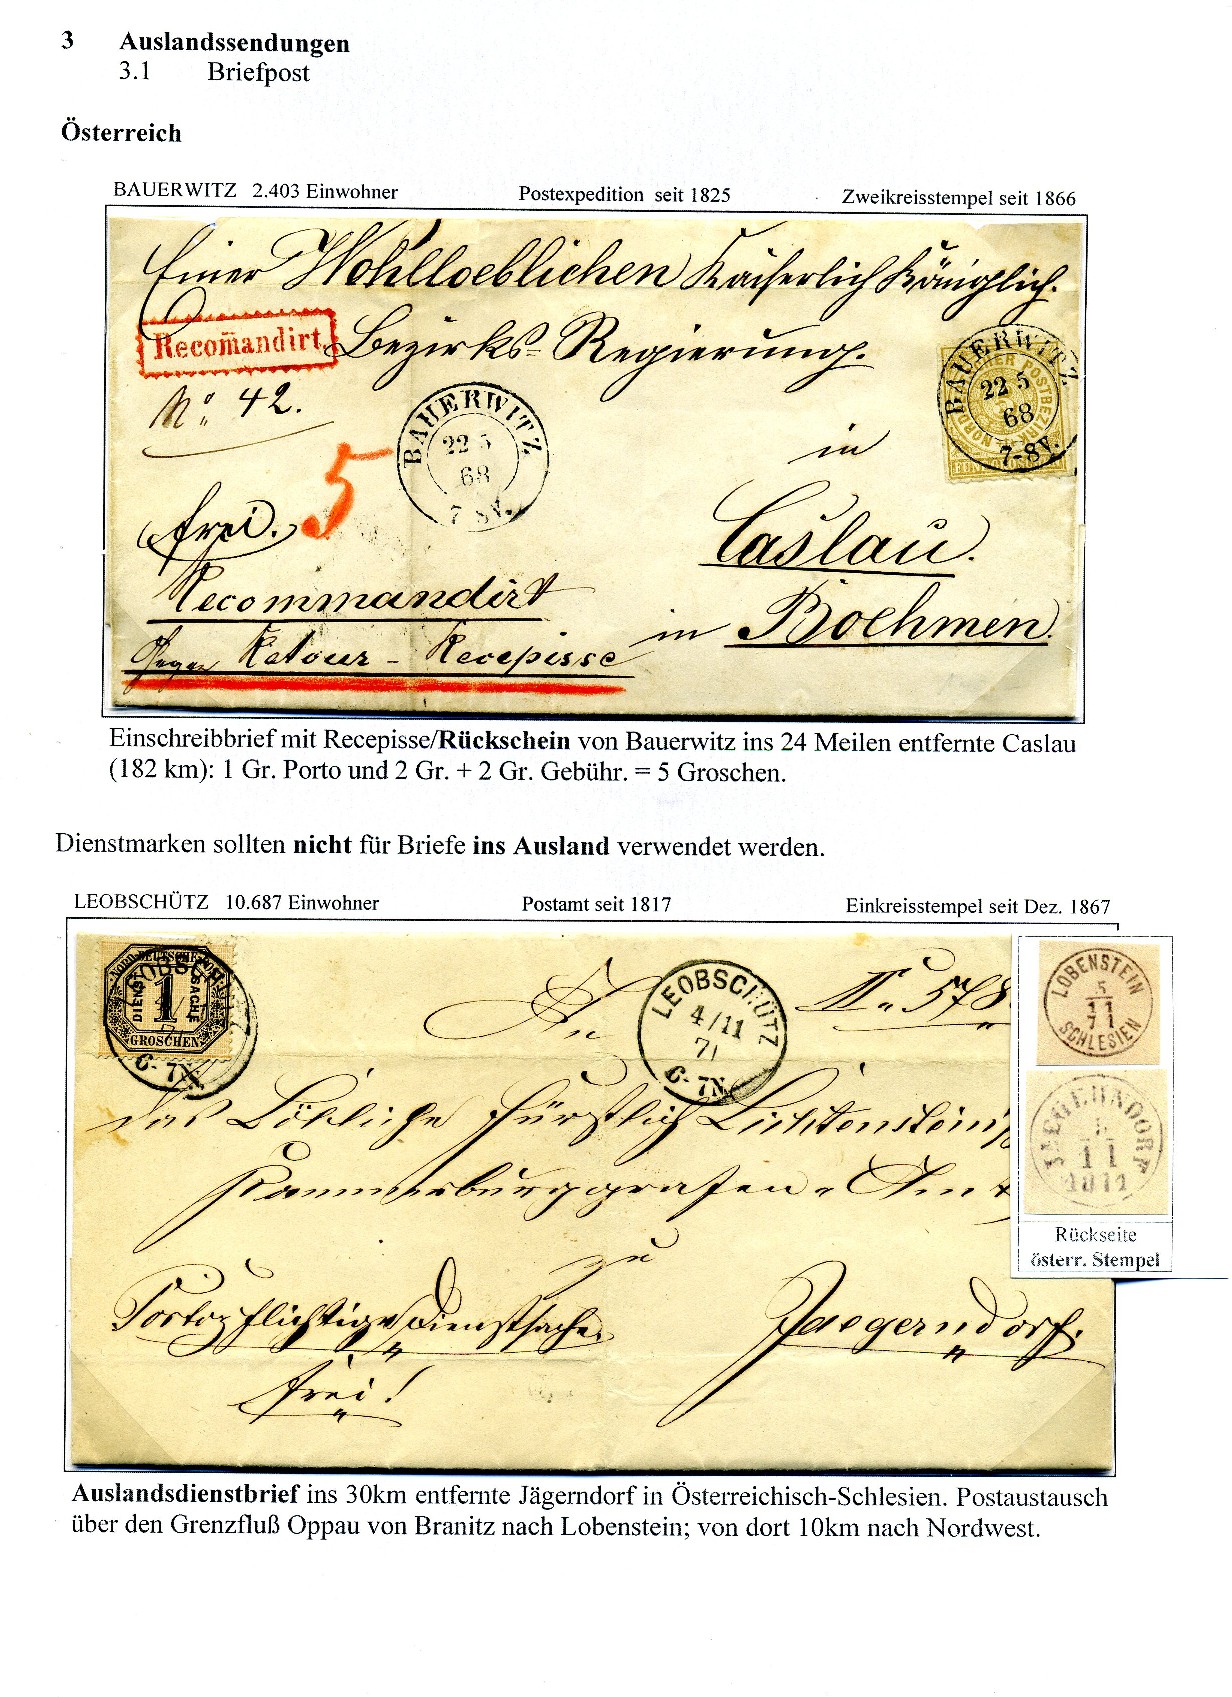 3 Auslandssendungen
3.1 Briefpost
Österreich
BAUERWITZ 2.403 Einwohner Postexpedition seit 1825 Zweikreisstempel seit 1866
Einer Wohlloeblichen Kaiserlich Königlich.
Recom̄andirt. Bezirks=Regierung.
No. 42.
BAUERWITZ
22 5
68
7-8V.
NORDD
POSTBEZIRK
BAUERWITZ.
22 5
68
7 8V.
in
5
frei.
Caslau.
Recommandirt
in Boehmen.
Gegen Retour-Recepisse
Einschreibbrief mit Recepisse/Rückschein von Bauerwitz ins 24 Meilen entfernte Caslau
(182 km): 1 Gr. Porto und 2 Gr. + 2 Gr. Gebühr. = 5 Groschen.
Dienstmarken sollten nicht für Briefe ins Ausland verwendet werden.
LEOBSCHÜTZ 10.687 Einwohner Postamt seit 1817 Einkreisstempel seit Dez. 1867
NORDDEUTSCHE POST
DIENST SACHE
1
GROSCHEN
6-7N.
LEOBSCHÜTZ
4/11
71
6-7N.
An
II" 578
LOBENSTEIN
5
11
71
SCHLESIEN
JAEGERNDORF
5
11
1871
das Löbliche Fürstlich Lichtenstein's
Kammerburggrafen-Amt
zu
Rückseite
österr. Stempel
Portopflichtige Dienstsache
Jaegerndorf.
frei!
Auslandsdienstbrief ins 30km entfernte Jägerndorf in Österreichisch-Schlesien. Postaustausch
über den Grenzfluß Oppau von Branitz nach Lobenstein; von dort 10km nach Nordwest.